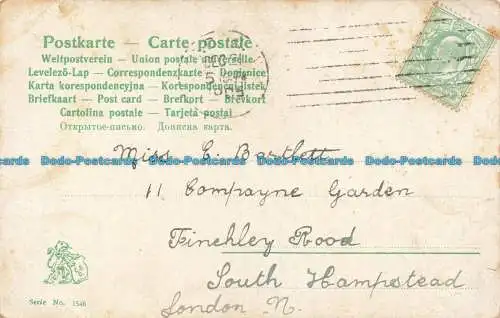 Postkarte – Carte postale
Weltpostverein – Union postale universelle
Levelező-Lap – Correspondenzkarte – Dopisnice
Karta korespondencyjna – Korespondenční lístek
Briefkaart – Post card – Brefkort – Brevkort
Cartolina postale – Tarjeta postal
Открытое-письмо. Дописна карта.
DEC
5
Miss E. Bartlett
Dodo-Postcards Dodo-Postcards Dodo-Postcards Dodo-Postcards Dodo-Postcards Dodo-Postcards
11 Compayne Garden
Finchley Rood
South Hampstead
London N.
Serie No. 1546